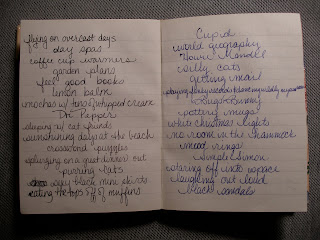 flying on overcast days
day spas
coffee cup warmers
garden plans
feel good books
lemon balm
mochas w/ tons of whipped cream
Dr. Pepper
sleeping w/ cat friends
unmotivating days at the beach
crossword puzzles
splurging on a great dinner out
purring cats
sexy black mini skirts
eating the tops off of muffins
Cupid
world geography
Howie Mandel
silly cats
getting mail
Bugs Bunny
pottery mugs
white christmas lights
no room in the hammock
mood rings
Simple Simon
staring off into space
laughing out loud
beach sandals